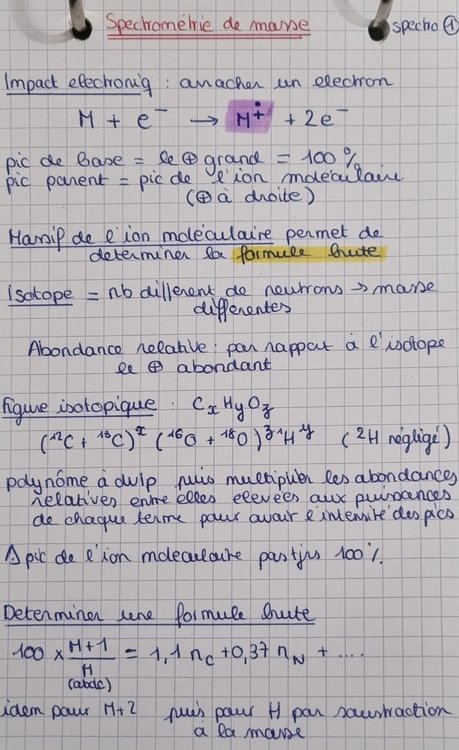 Spectrométrie de masse
spectro ①
Impact electroniq : arracher un electron
M + e⁻ → M⁺• + 2e⁻
pic de base = le ⊕ grand = 100 %
pic parent = pic de l'ion moléculaire.
(⊕ à droite)
Massif de l'ion moléculaire permet de
determiner la formule brute
Isotope = nb different de neutrons → masse
differentes
Abondance relative : par rapport à l'isotope
le ⊕ abondant
Figure isotopique . CxHyOz
(¹²C + ¹³C)ˣ (¹⁶O + ¹⁸O)ᶻ ¹Hʸ (²H négligé)
polynôme à dvlp puis multiplier les abondances
relatives entre elles elevées aux puissances
de chaque terme pour avoir l'intensité des pics
⚠ pic de l'ion moleculaire pas tjrs 100 %.
Determiner une formule brute
100 × M+1 / M = 1,1 nC + 0,37 nN + ....
(abdc)
idem pour M+2 puis pour H par soustraction
à la masse